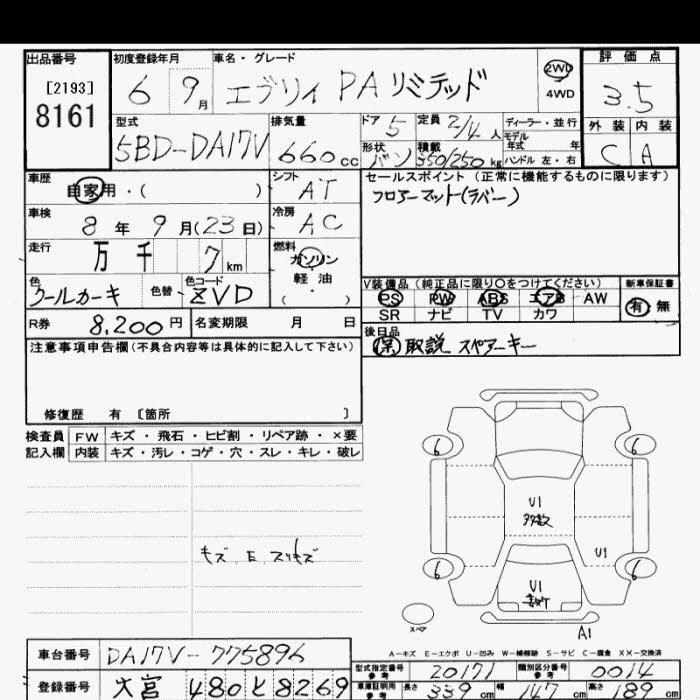 出品番号 初度登録年月 車名・グレード 評価点
[2193]
8161
6 9月 エブリィ PA リミテッド 2WD 4WD 3.5
型式 排気量 ドア 定員 ディーラー・並行 外装 内装
5BD-DA17V 660cc 5 2/4人 モデル年式 年
形状 バン 積載 350/250kg ハンドル 左・右 C A
車歴 自家用・( ) シフト AT セールスポイント(正常に機能するものに限ります)
フロアーマット(ラバー)
車検 8年 9月(23日) 冷房 AC
走行 万 千 7km 燃料 ガソリン・軽油・( )
色 クールカーキ 色替 色コード ZVD
V装備品(純正品に限り○をつけてください) 新車保証書
PS PW ABS エアB AW 有・無
SR ナビ TV カワ
R券 8,200円 名変期限 月 日
後日品
保 取説 スペアーキー
注意事項申告欄(不具合内容等は具体的に記入して下さい)
修復歴 有 [箇所 ]
検査員 FW キズ・飛石・ヒビ割・リペア跡・×要
記入欄 内装 キズ・汚レ・コゲ・穴・スレ・キレ・破レ
キズ、E、スリキズ
6 6
U1
多数
U1
6 6
U1
スペア
A1
A-キズ E-エクボ U-凹み W-補修跡 S-サビ C-腐食 XX-交換済
車台番号 DA17V-775896
型式指定番号 参考 20171 類別区分番号 参考 0014
登録番号 大宮 480 と 8269
車庫証明用 参考 長さ 339cm 幅 147cm 高さ 189cm